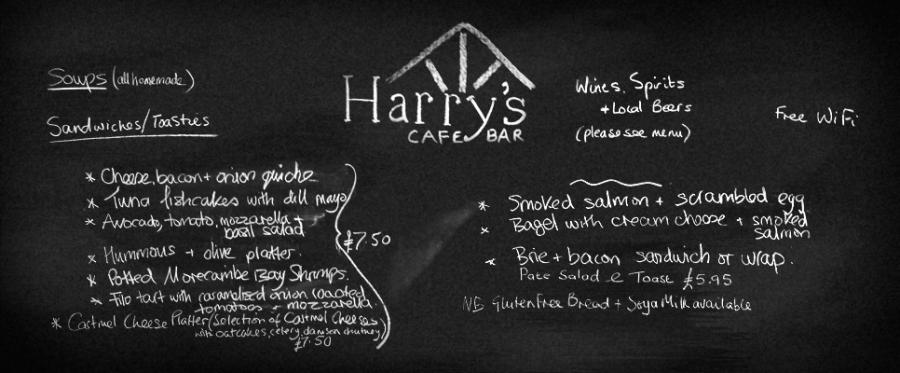 Soups (all homemade)
Sandwiches/Toasties
Harry's
CAFE BAR
Wines, Spirits
+ Local Beers
(please see menu)
Free WiFi
* Cheese, bacon + onion quiche
* Tuna fishcakes with dill mayo
* Avocado, tomato, mozzarella +
basil salad
* Hummous + olive platter
* Potted Morecambe Bay Shrimps.
* Filo tart with caramelised onion roasted
tomatoes + mozzarella
£7.50
* Cartmel Cheese Platter/Selection of Cartmel Cheeses
with oatcakes, celery, damson chutney)
£7.50
* Smoked salmon + scrambled egg
* Bagel with cream cheese + smoked
salmon
* Brie + bacon sandwich or wrap.
Pate Salad & Toast £5.95
NB Gluten Free Bread + Soya Milk available